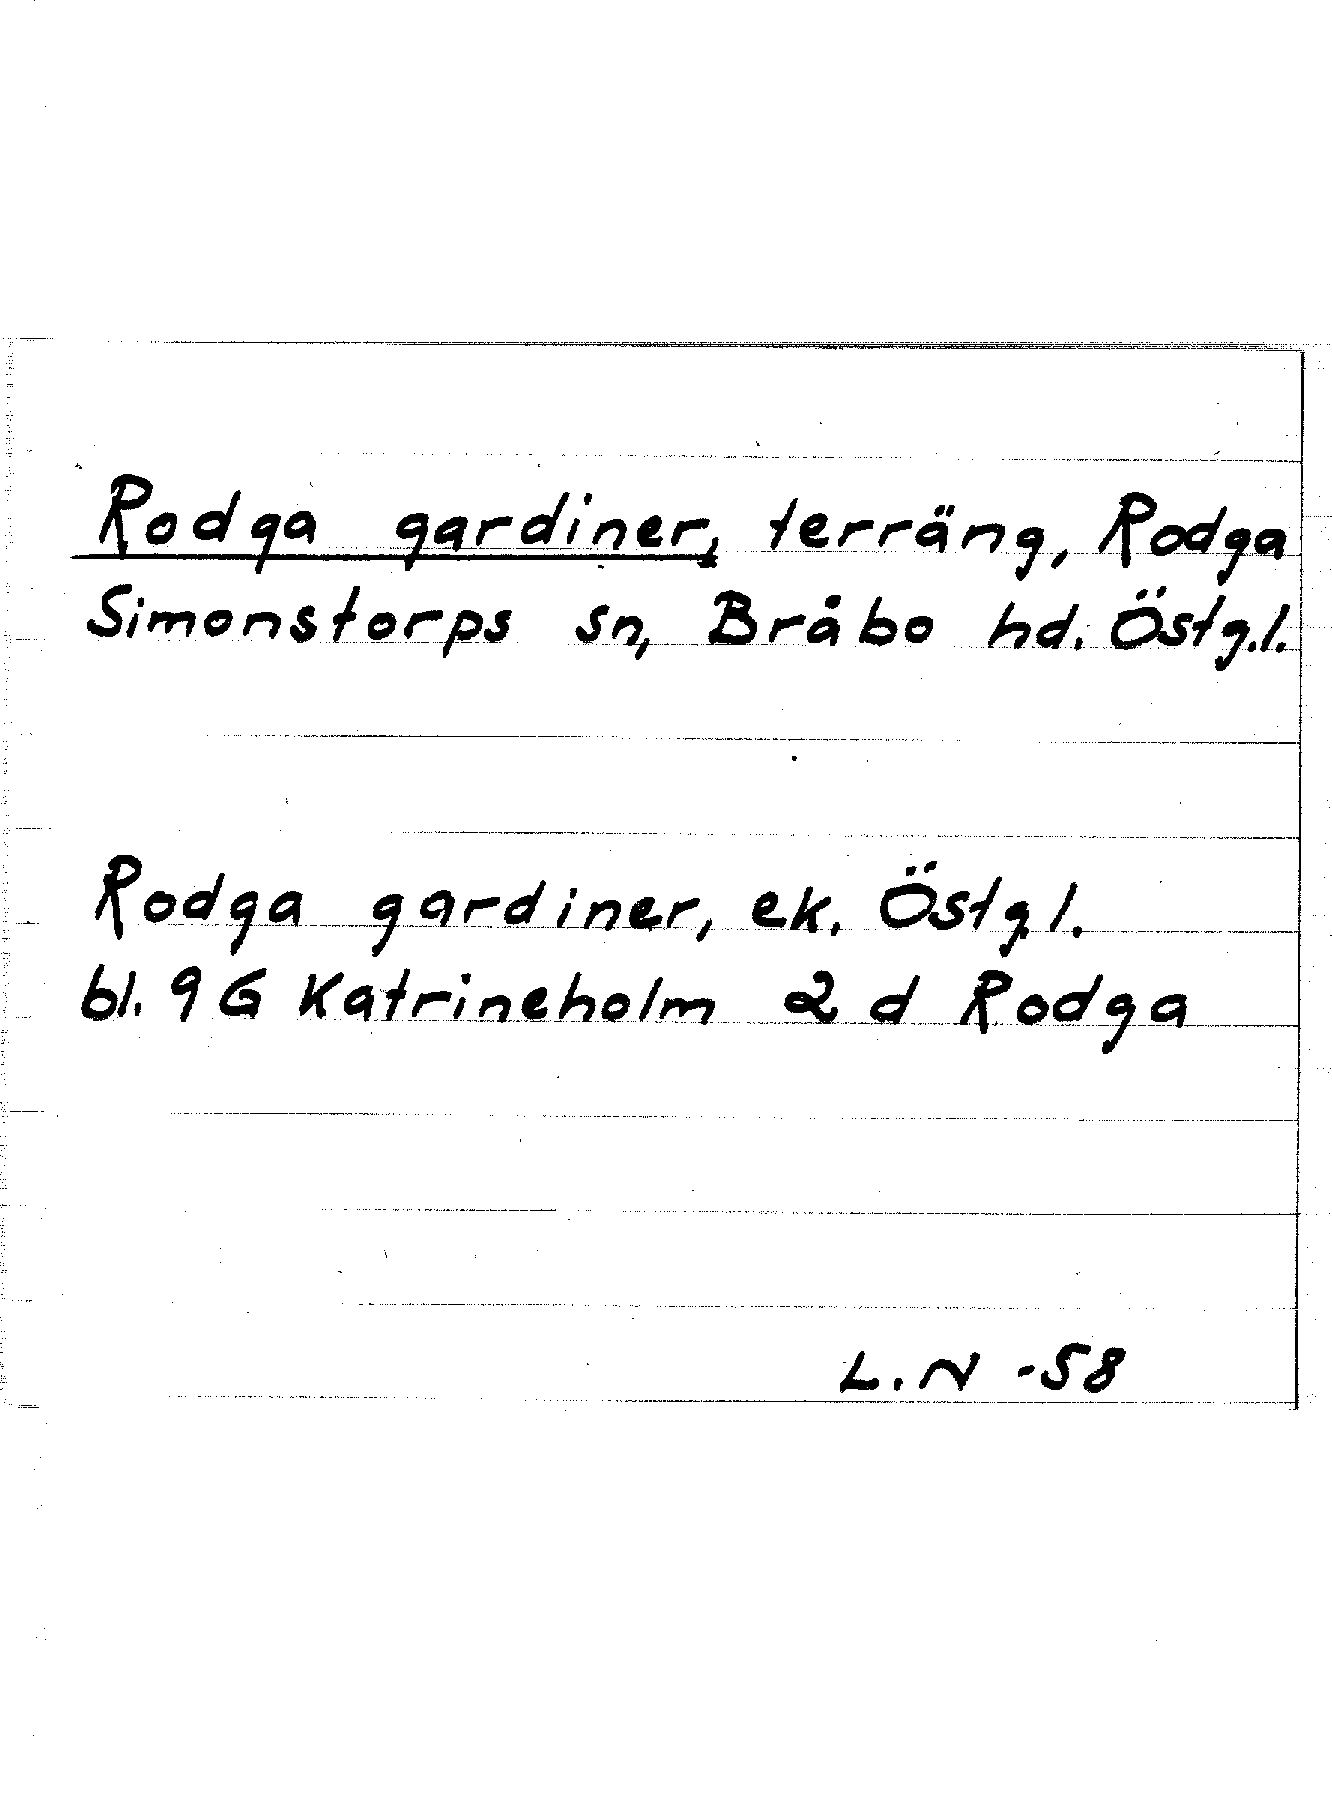 Rodga gardiner, terräng, Rodga
Simonstorps sn, Bråbo hd. Östg.l.
Rodga gardiner, ek. Östg.l.
bl. 9 G Katrineholm 2 d Rodga
L.N -58